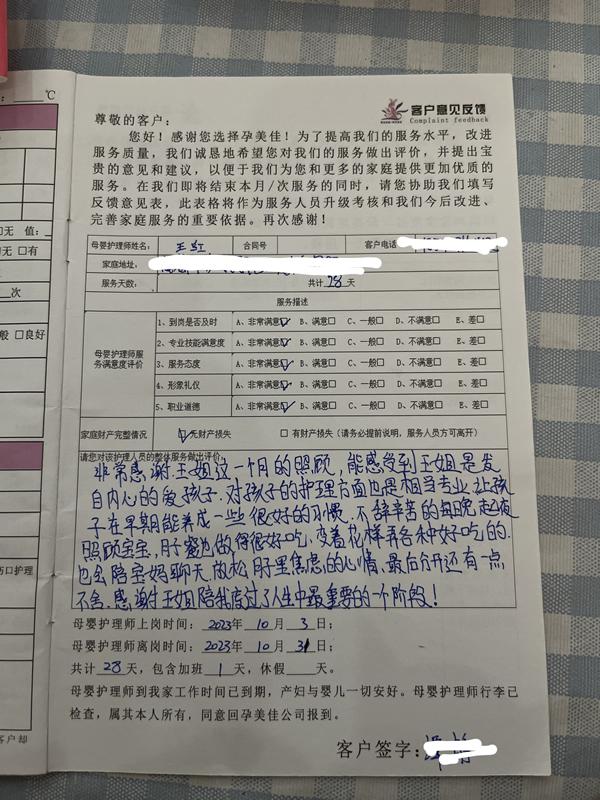 ℃
客户意见反馈
Complaint feedback
尊敬的客户：
您好！感谢您选择孕美佳！为了提高我们的服务水平，改进
服务质量，我们诚恳地希望您对我们的服务做出评价，并提出宝
贵的意见和建议，以便于我们为您和更多的家庭提供更加优质的
服务。在我们即将结束本月/次服务的同时，请您协助我们填写
反馈意见表，此表格将作为服务人员升级考核和我们今后改进、
完善家庭服务的重要依据。再次感谢！
母婴护理师姓名： 王红 合同号 客户电话
家庭地址：
服务天数： 共计28天
服务描述
母婴护理师服
务满意度评价
1、到岗是否及时 A、非常满意☑ B、满意□ C、一般□ D、不满意□ E、差□
2、专业技能满意度 A、非常满意☑ B、满意□ C、一般□ D、不满意□ E、差□
3、服务态度 A、非常满意☑ B、满意□ C、一般□ D、不满意□ E、差□
4、形象礼仪 A、非常满意☑ B、满意□ C、一般□ D、不满意□ E、差□
5、职业道德 A、非常满意☑ B、满意□ C、一般□ D、不满意□ E、差□
家庭财产完整情况 ☑无财产损失 □有财产损失（请务必提前说明，服务人员方可离开）
请您对该护理人员的整体服务做出评价：
非常感谢王姐这一个月的照顾，能感受到王姐是发
自内心的爱孩子.对孩子的护理方面也是相当专业，让孩
子在早期能养成一些很好的习惯.不辞辛苦的每晚起夜
照顾宝宝，月子餐也做得很好吃，变着花样弄各种好吃的.
也会陪宝妈聊天，放松月子里焦虑的心情，最后分开还有一点
不舍.感谢王姐陪我度过了人生中最重要的一个阶段！
母婴护理师上岗时间：2023年10月3日；
母婴护理师离岗时间：2023年10月31日；
共计28天，包含加班1天，休假 天。
母婴护理师到我家工作时间已到期，产妇与婴儿一切安好。母婴护理师行李已
检查，属其本人所有，同意回孕美佳公司报到。
客户签字：
□无 值：
无 □有
次
般 □良好
伤口护理
客户却